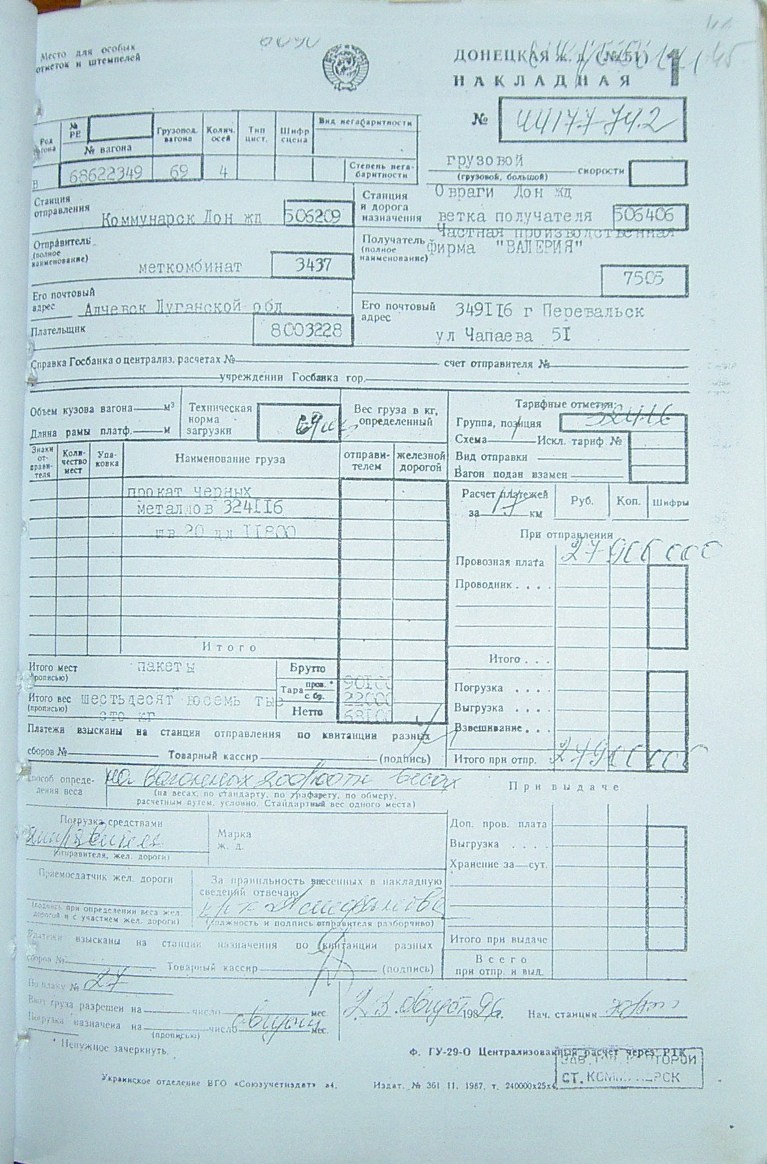 Место для особых
отметок и штемпелей
ДОНЕЦКАЯ ж. д. (№ 51)
НАКЛАДНАЯ
1
№
44177742
№ РЕ
Род вагона
№ вагона
Грузопод. вагона
Колич. осей
Тип цист.
Шифр сцепа
Вид негабаритности
68622349 69 4
Степень негабаритности
грузовой
(грузовой, большой)
скорости
Станция отправления
Коммунарск Дон жд
506209
Станция и дорога назначения
Овраги Дон жд
ветка получателя
506406
Отправитель (полное наименование)
меткомбинат
3437
Получатель (полное наименование)
Частная производственная
Фирма "ВАЛЕРИЯ"
7505
Его почтовый адрес
Алчевск Луганской обл
Его почтовый адрес
349116 г Перевальск
ул Чапаева 51
Плательщик
8003228
Справка Госбанка о централиз. расчетах №
счет отправителя №
учреждении Госбанка гор.
Объем кузова вагона м³
Длина рамы платф. м
Техническая норма загрузки
Вес груза в кг, определенный
Тарифные отметки:
Группа, позиция
Схема Искл. тариф №
Вид отправки
Вагон подан взамен
Знаки отправителя
Количество мест
Упаковка
Наименование груза
отправителем
железной дорогой
прокат черных
металлов 324116
шв 20 дл 11800
Расчет платежей
за 17 км
Руб.
Коп.
Шифры
При отправлении
Провозная плата
27900000
Проводник . . . .
Итого
Итого . . .
Итого мест (прописью)
пакеты
Итого вес (прописью)
шестьдесят восемь тыс
сто кг
Брутто
Тара
пров. *
с бр.
Нетто
90100
22000
68100
Погрузка . . . .
Выгрузка . . . .
Взвешивание . . .
Итого при отпр.
27900000
Платежи взысканы на станции отправления по квитанции разных
сборов № Товарный кассир (подпись)
Способ определения веса
на вагонных весах
(на весах, по стандарту, по трафарету, по обмеру,
расчетным путем, условно. Стандартный вес одного места)
При выдаче
Погрузка средствами
(отправителя, жел. дороги)
Марка ж. д.
Доп. пров. плата
Выгрузка . . . .
Хранение за сут.
Приемосдатчик жел. дороги
(подпись при определении веса жел.
дорогой и с участием жел. дороги)
За правильность внесенных в накладную
сведений отвечаю
(должность и подпись отправителя разборчиво)
Итого при выдаче
Всего
при отпр. и выд.
Платежи взысканы на станции назначения по квитанции разных
сборов № Товарный кассир (подпись)
По плану № 27
Ввоз груза разрешен на число мес.
Погрузка назначена на число мес.
(прописью)
23 август 1996.
Нач. станции
* Ненужное зачеркнуть.
Ф. ГУ-29-О Централизованный расчет через РТК
СТ. КОММУНАРСК
Украинское отделение ВГО «Союзучетиздат» в4.
Издат. № 361 11. 1987, т. 240000х25х6